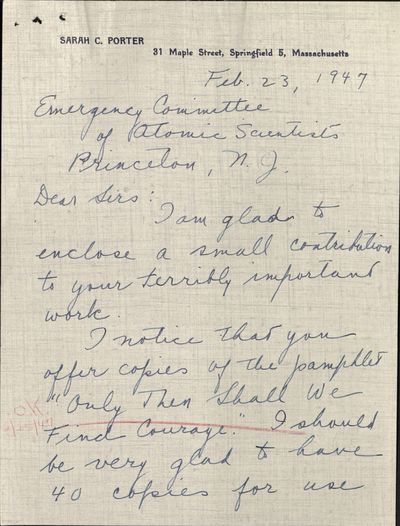 SARAH C. PORTER
31 Maple Street, Springfield 5, Massachusetts
Feb. 23, 1947
Emergency Committee
of Atomic Scientists
Princeton, N. J.
Dear Sirs:
I am glad to
enclose a small contribution
to your terribly important
work.
I notice that you
offer copies of the pamphlet
"Only Then Shall We
Find Courage." I should
be very glad to have
40 copies for use
OK